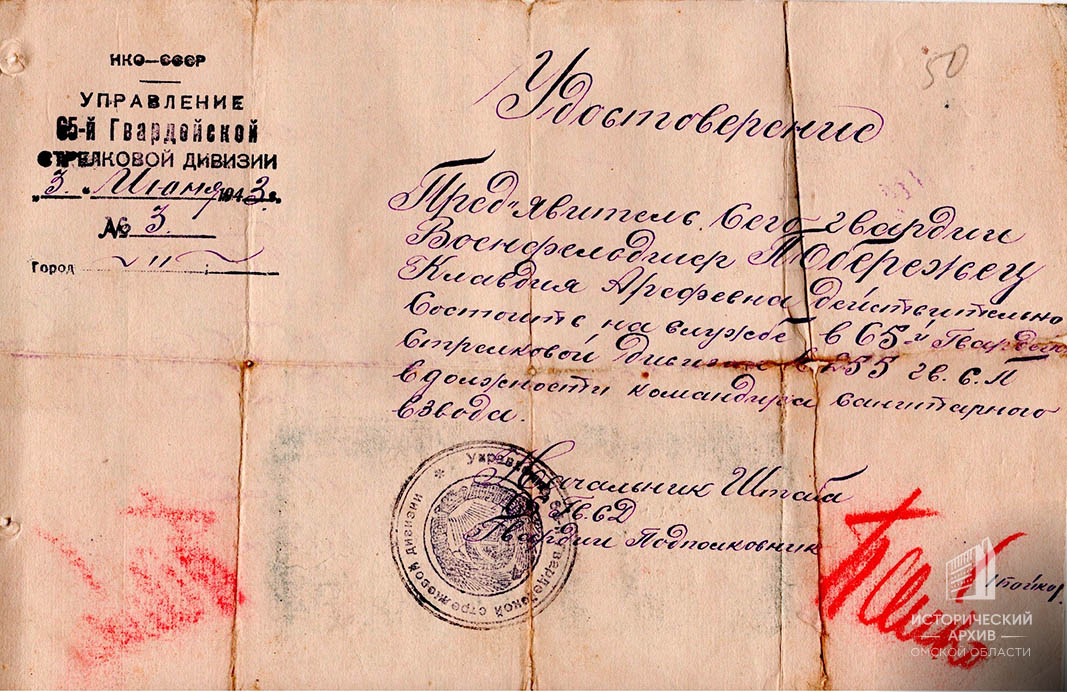 НКО—СССР
УПРАВЛЕНИЕ
65-й Гвардейской
СТРЕЛКОВОЙ ДИВИЗИИ
„3.“ Июня 1943 г.
№ 3
Город
50
Удостоверение
Пред'явитель Сего гвардии
Военфельдшер Побережец
Клавдия Арефевна действительно
Состоит на службе в 65й Гвардей
Стрелковой Дивизии в 255 гв. С. П
в должности командира санитарного
взвода.
Начальник Штаба
65 Гв. СД
Гвардии Подполковник
Управление 65-й Гвардейской стрелковой дивизии
ИСТОРИЧЕСКИЙ
АРХИВ
ОМСКОЙ ОБЛАСТИ